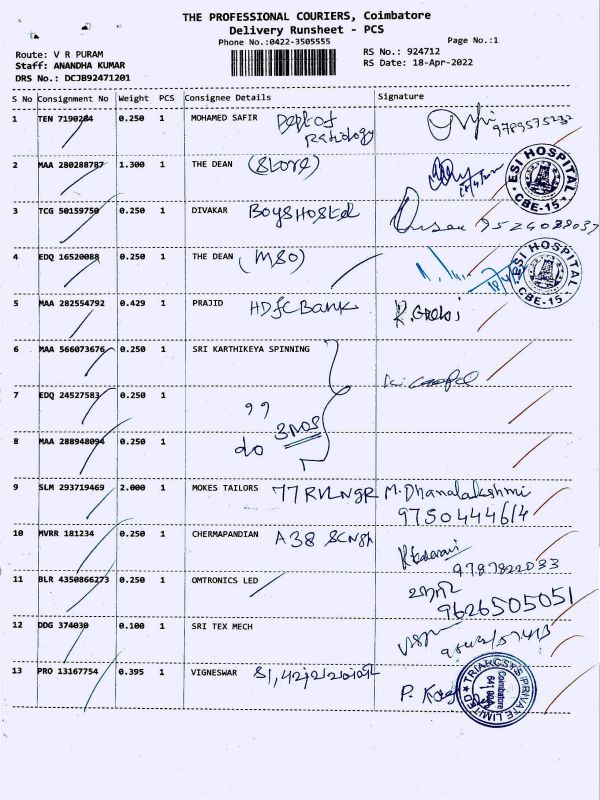 THE PROFESSIONAL COURIERS, Coimbatore
Delivery Runsheet - PCS
Phone No.:0422-3505555
Page No.:1
Route: V R PURAM
RS No.: 924712
Staff: ANANDHA KUMAR
RS Date: 18-Apr-2022
DRS No.: DCJB92471201
S No Consignment No Weight PCS Consignee Details Signature
1 TEN 7190284 0.250 1 MOHAMED SAFIR Dept of
Ratiology
9789575232
2 MAA 280288787 1.300 1 THE DEAN (Store)
ESI HOSPITAL
CBE-15
3 TCG 50159750 0.250 1 DIVAKAR Boys Hostel
9524088037
4 EDQ 16520088 0.250 1 THE DEAN (MSO)
ESI HOSPITAL
CBE-15
5 MAA 282554792 0.429 1 PRAJID HDFC Bank
6 MAA 566073676 0.250 1 SRI KARTHIKEYA SPINNING
7 EDQ 24527583 0.250 1
,,
do 3NOS
8 MAA 288948094 0.250 1
9 SLM 293719469 2.000 1 MOKES TAILORS 77 RVLNGR M. Dhanalakshmi
9750444614
10 MVRR 181234 0.250 1 CHERMAPANDIAN A38
9787822033
11 BLR 4350866273 0.250 1 OMTRONICS LED
9626505051
12 DDG 374030 0.100 1 SRI TEX MECH
13 PRO 13167754 0.395 1 VIGNESWAR
TRIARCSYS PRIVATE LIMITED
Coimbatore